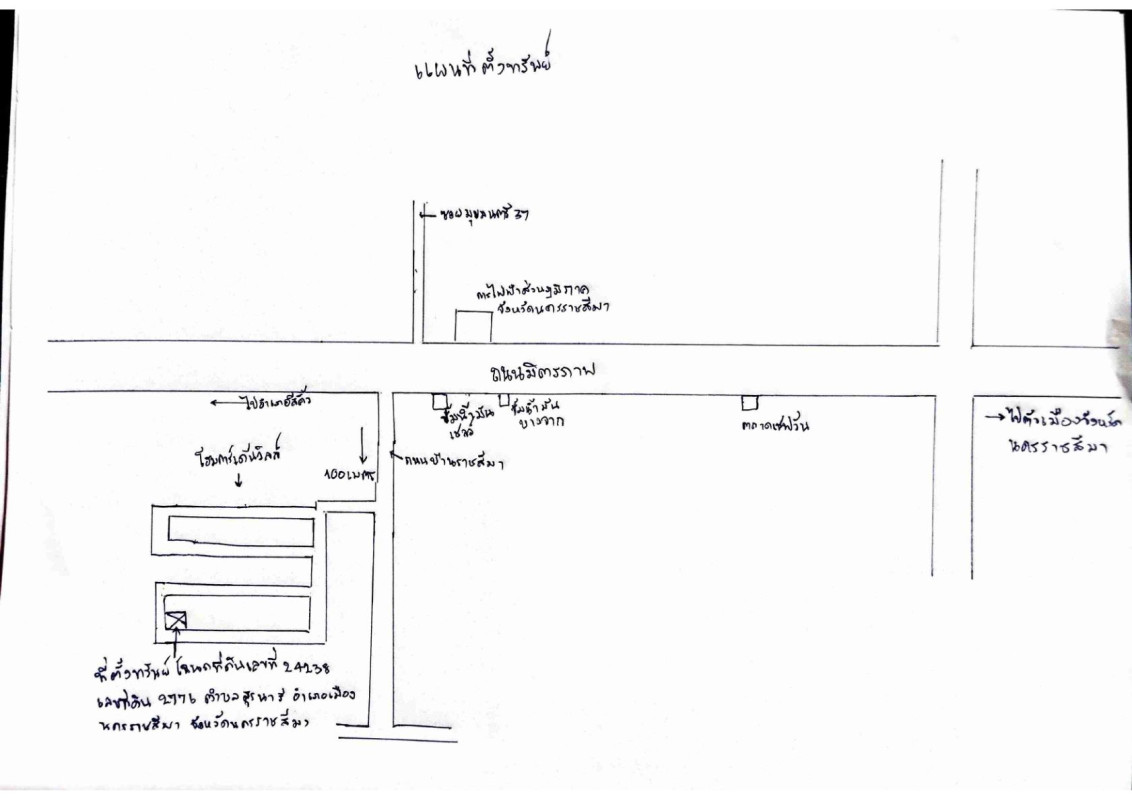 แผนที่ตั้งทรัพย์
ซอยมุขมนตรี 37
การไฟฟ้าส่วนภูมิภาค
จังหวัดนครราชสีมา
ถนนมิตรภาพ
ไปอำเภอสีคิ้ว
ปั้มน้ำมัน
เชลล์
ปั้มน้ำมัน
บางจาก
ตลาดเซฟวัน
ไปตัวเมืองจังหวัด
นครราชสีมา
โฮมการ์เด้นวิลล์
100 เมตร
ถนนบ้านราชสีมา
ที่ตั้งทรัพย์ โฉนดที่ดินเลขที่ 24238
เลขที่ดิน 2776 ตำบลสุรนารี อำเภอเมือง
นครราชสีมา จังหวัดนครราชสีมา